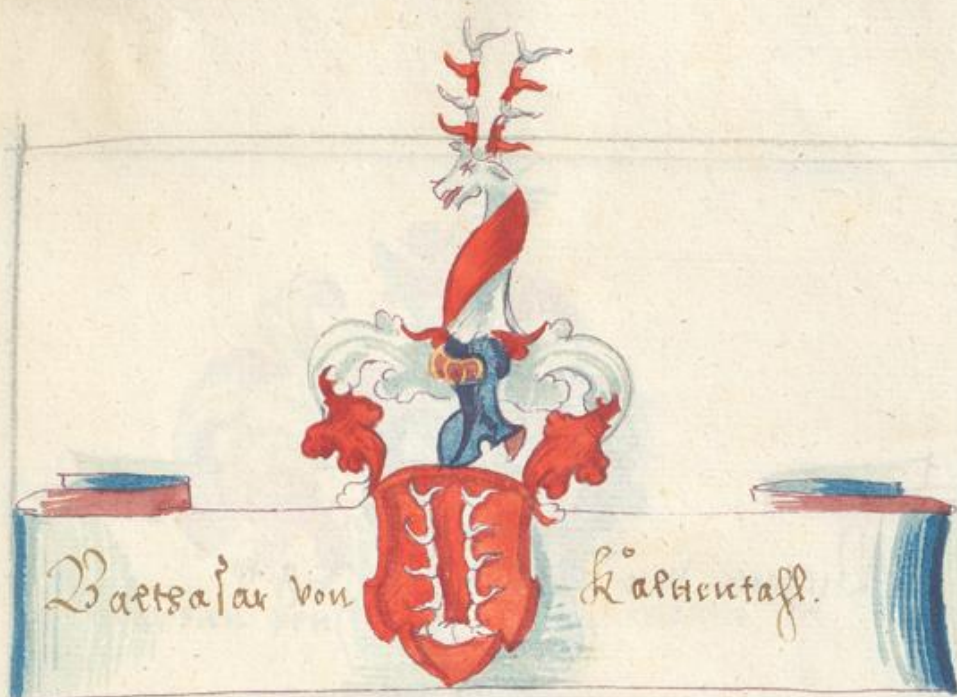 Balthasar von Kaltentahl.